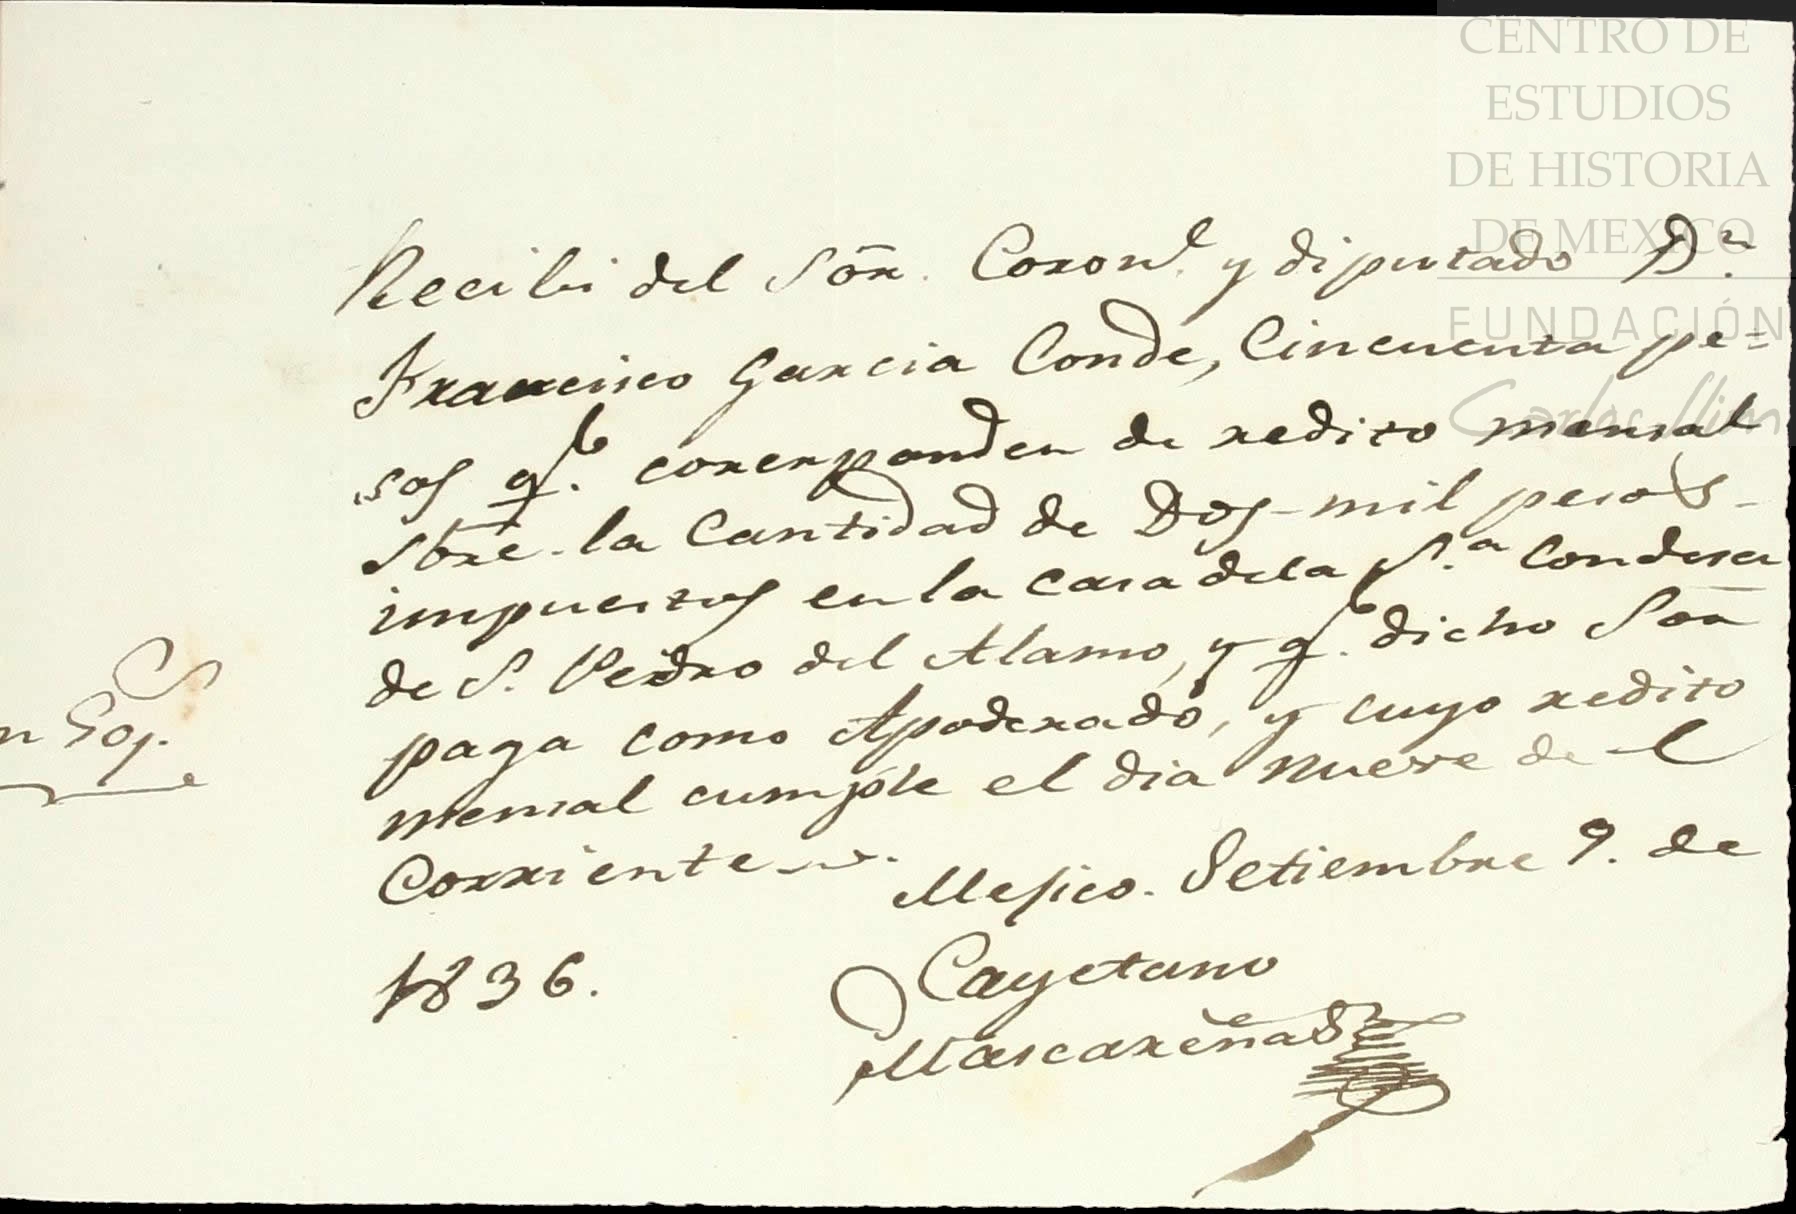 CENTRO DE
ESTUDIOS
DE HISTORIA
DE MEXICO
FUNDACIÓN
Carlos Slim
Recibi del Sõr. Coronl. y diputado Dn.
Francisco Garcia Conde, Cincuenta pe=
sos qe. corerponden de redito mensal
Sbre. la Cantidad de Dos-mil pesos-
impuestos en la casa dela Sa. Condesa
de S. Pedro del Alamo, y qe. dicho Sõr
paga como Apoderado, y cuyo redito
mensal cumple el dia nueve de l
Corriente.
Mejico. Setiembre 9. de
1836.
Cayetano
Mascareñas
n 50ps.